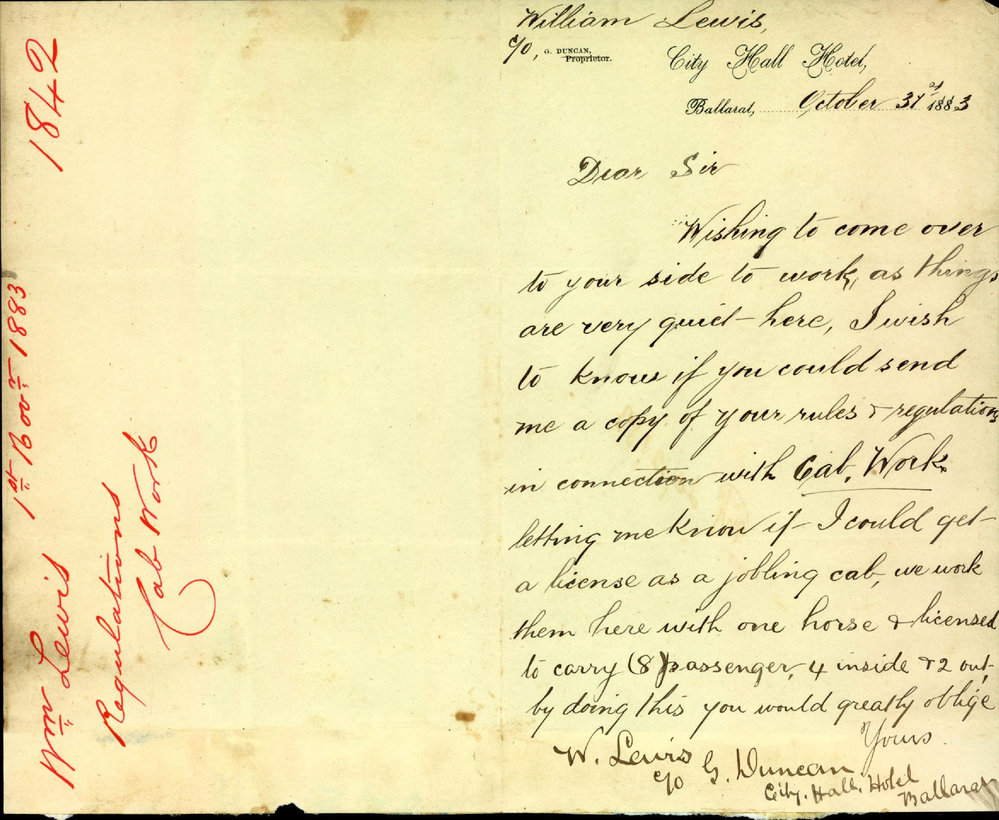 William Lewis,
C/o, G. DUNCAN,
Proprietor.
City Hall Hotel,
Ballarat, October 31st 1883
Dear Sir
Wishing to come over
to your side to work, as things
are very quiet here, I wish
to know if you could send
me a copy of your rules & regulations
in connection with Cab, Work
letting me know if I could get
a license as a jobling cab, we work
them here with one horse & licensed
to carry (8) passenger, 4 inside & 2 out,
by doing this you would greatly oblige
Yours
W. Lewis
c/o G. Duncan
City. Hall. Hotel
Ballarat
1842
Wm Lewis 1st Novr 1883
Regulations
Cab Work